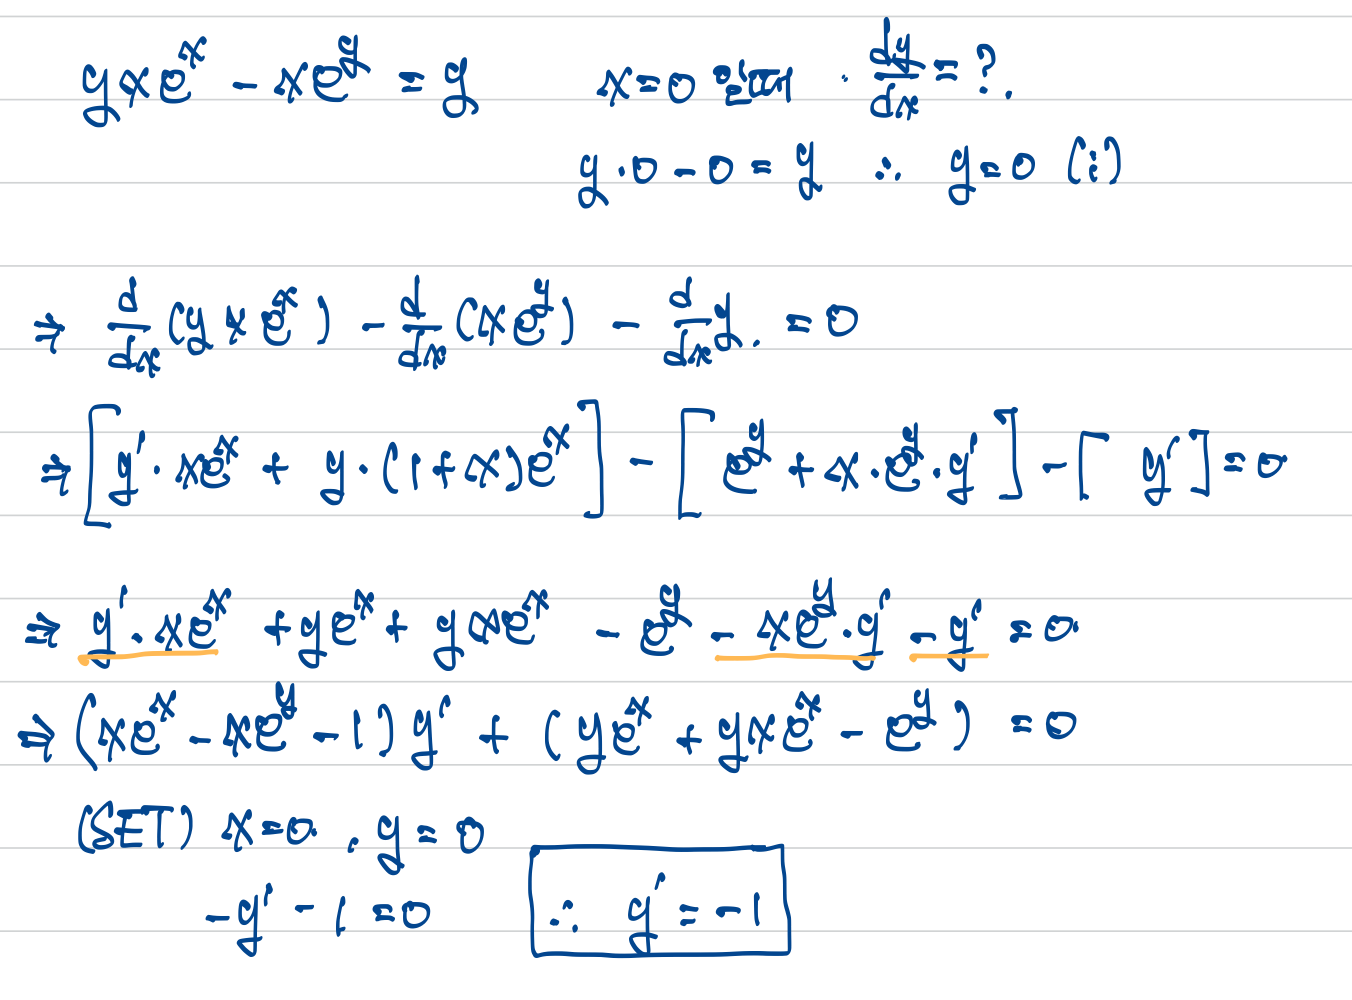 yxe^x - xe^y = y x=0 일때 . dy/dx = ?.
y·0 - 0 = y ∴ y=0 (i)
⇒ d/dx (y x e^x) - d/dx (xe^y) - d/dx y. = 0
⇒ [y'·xe^x + y·(1+x)e^x] - [e^y + x·e^y·y'] - [y'] = 0
⇒ y'·xe^x + ye^x + yxe^x - e^y - xe^y·y' - y' = 0.
⇒ (xe^x - xe^y - 1) y' + (ye^x + yxe^x - e^y) = 0
(SET) x=0. , y=0
-y' - 1 = 0 ∴ y' = -1